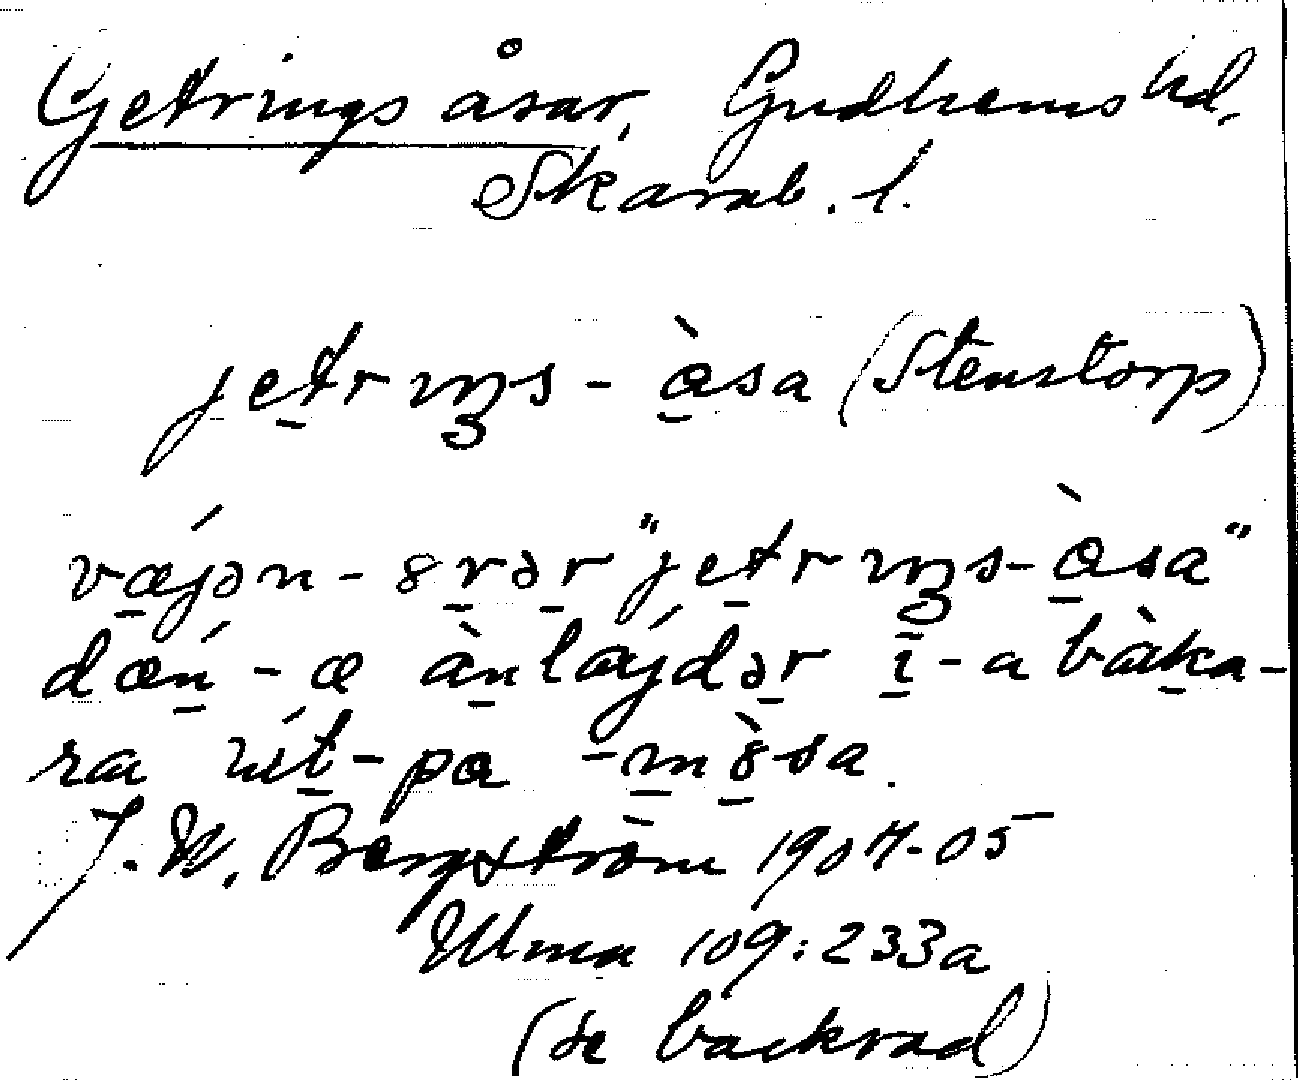 Getrings åsar, Gudhems hd,
Skarab. l.
jetrıŋs - àsa (Stenstorp)
væ̱jən - 8rər "jetrıŋs-àsa"
dæń - æ ànlájdər ı̄ - a bàka-
ra út - pa - m8̀sa.
J. W. Bergström 1904-05
Ulma 109:233a
(se backrad)